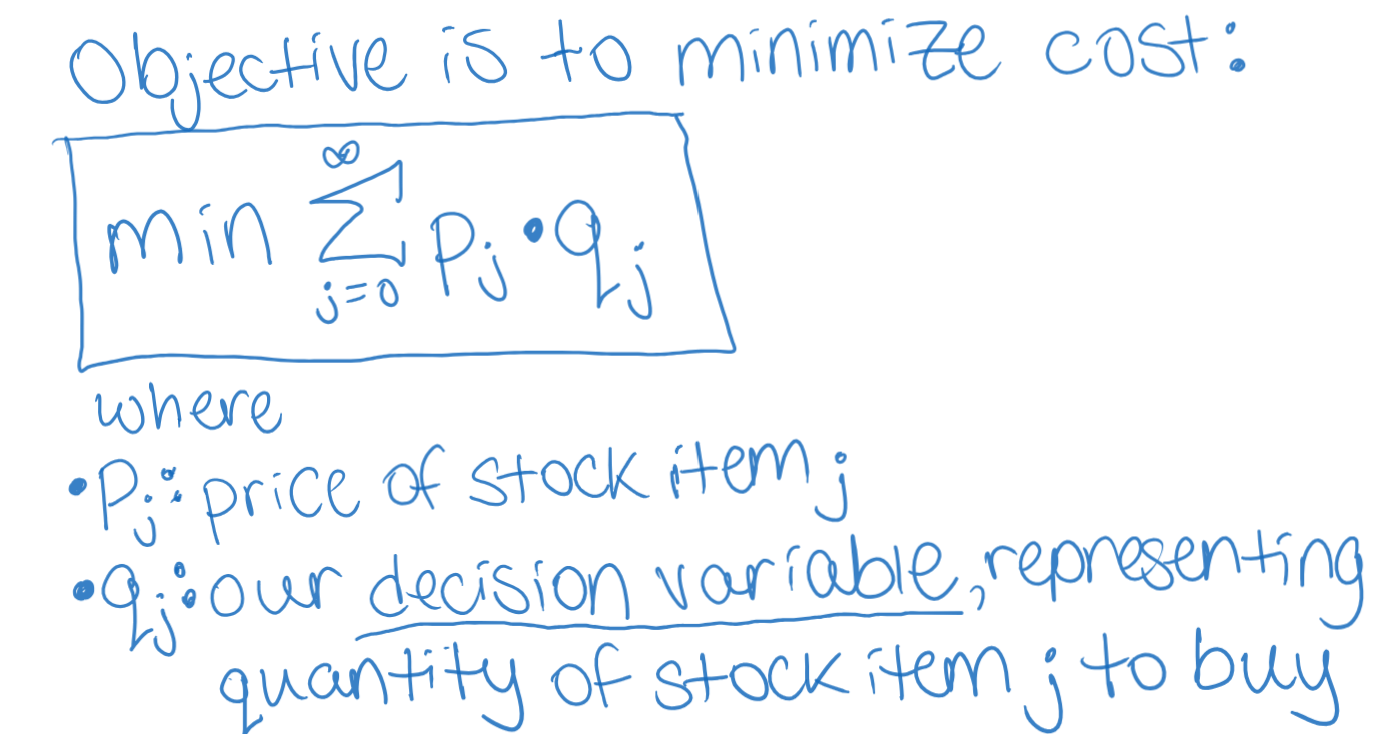 Objective is to minimize cost:
min ∞∑j=0 pj • qj
where
• Pj: price of stock item j
• qj: our decision variable, representing
quantity of stock item j to buy